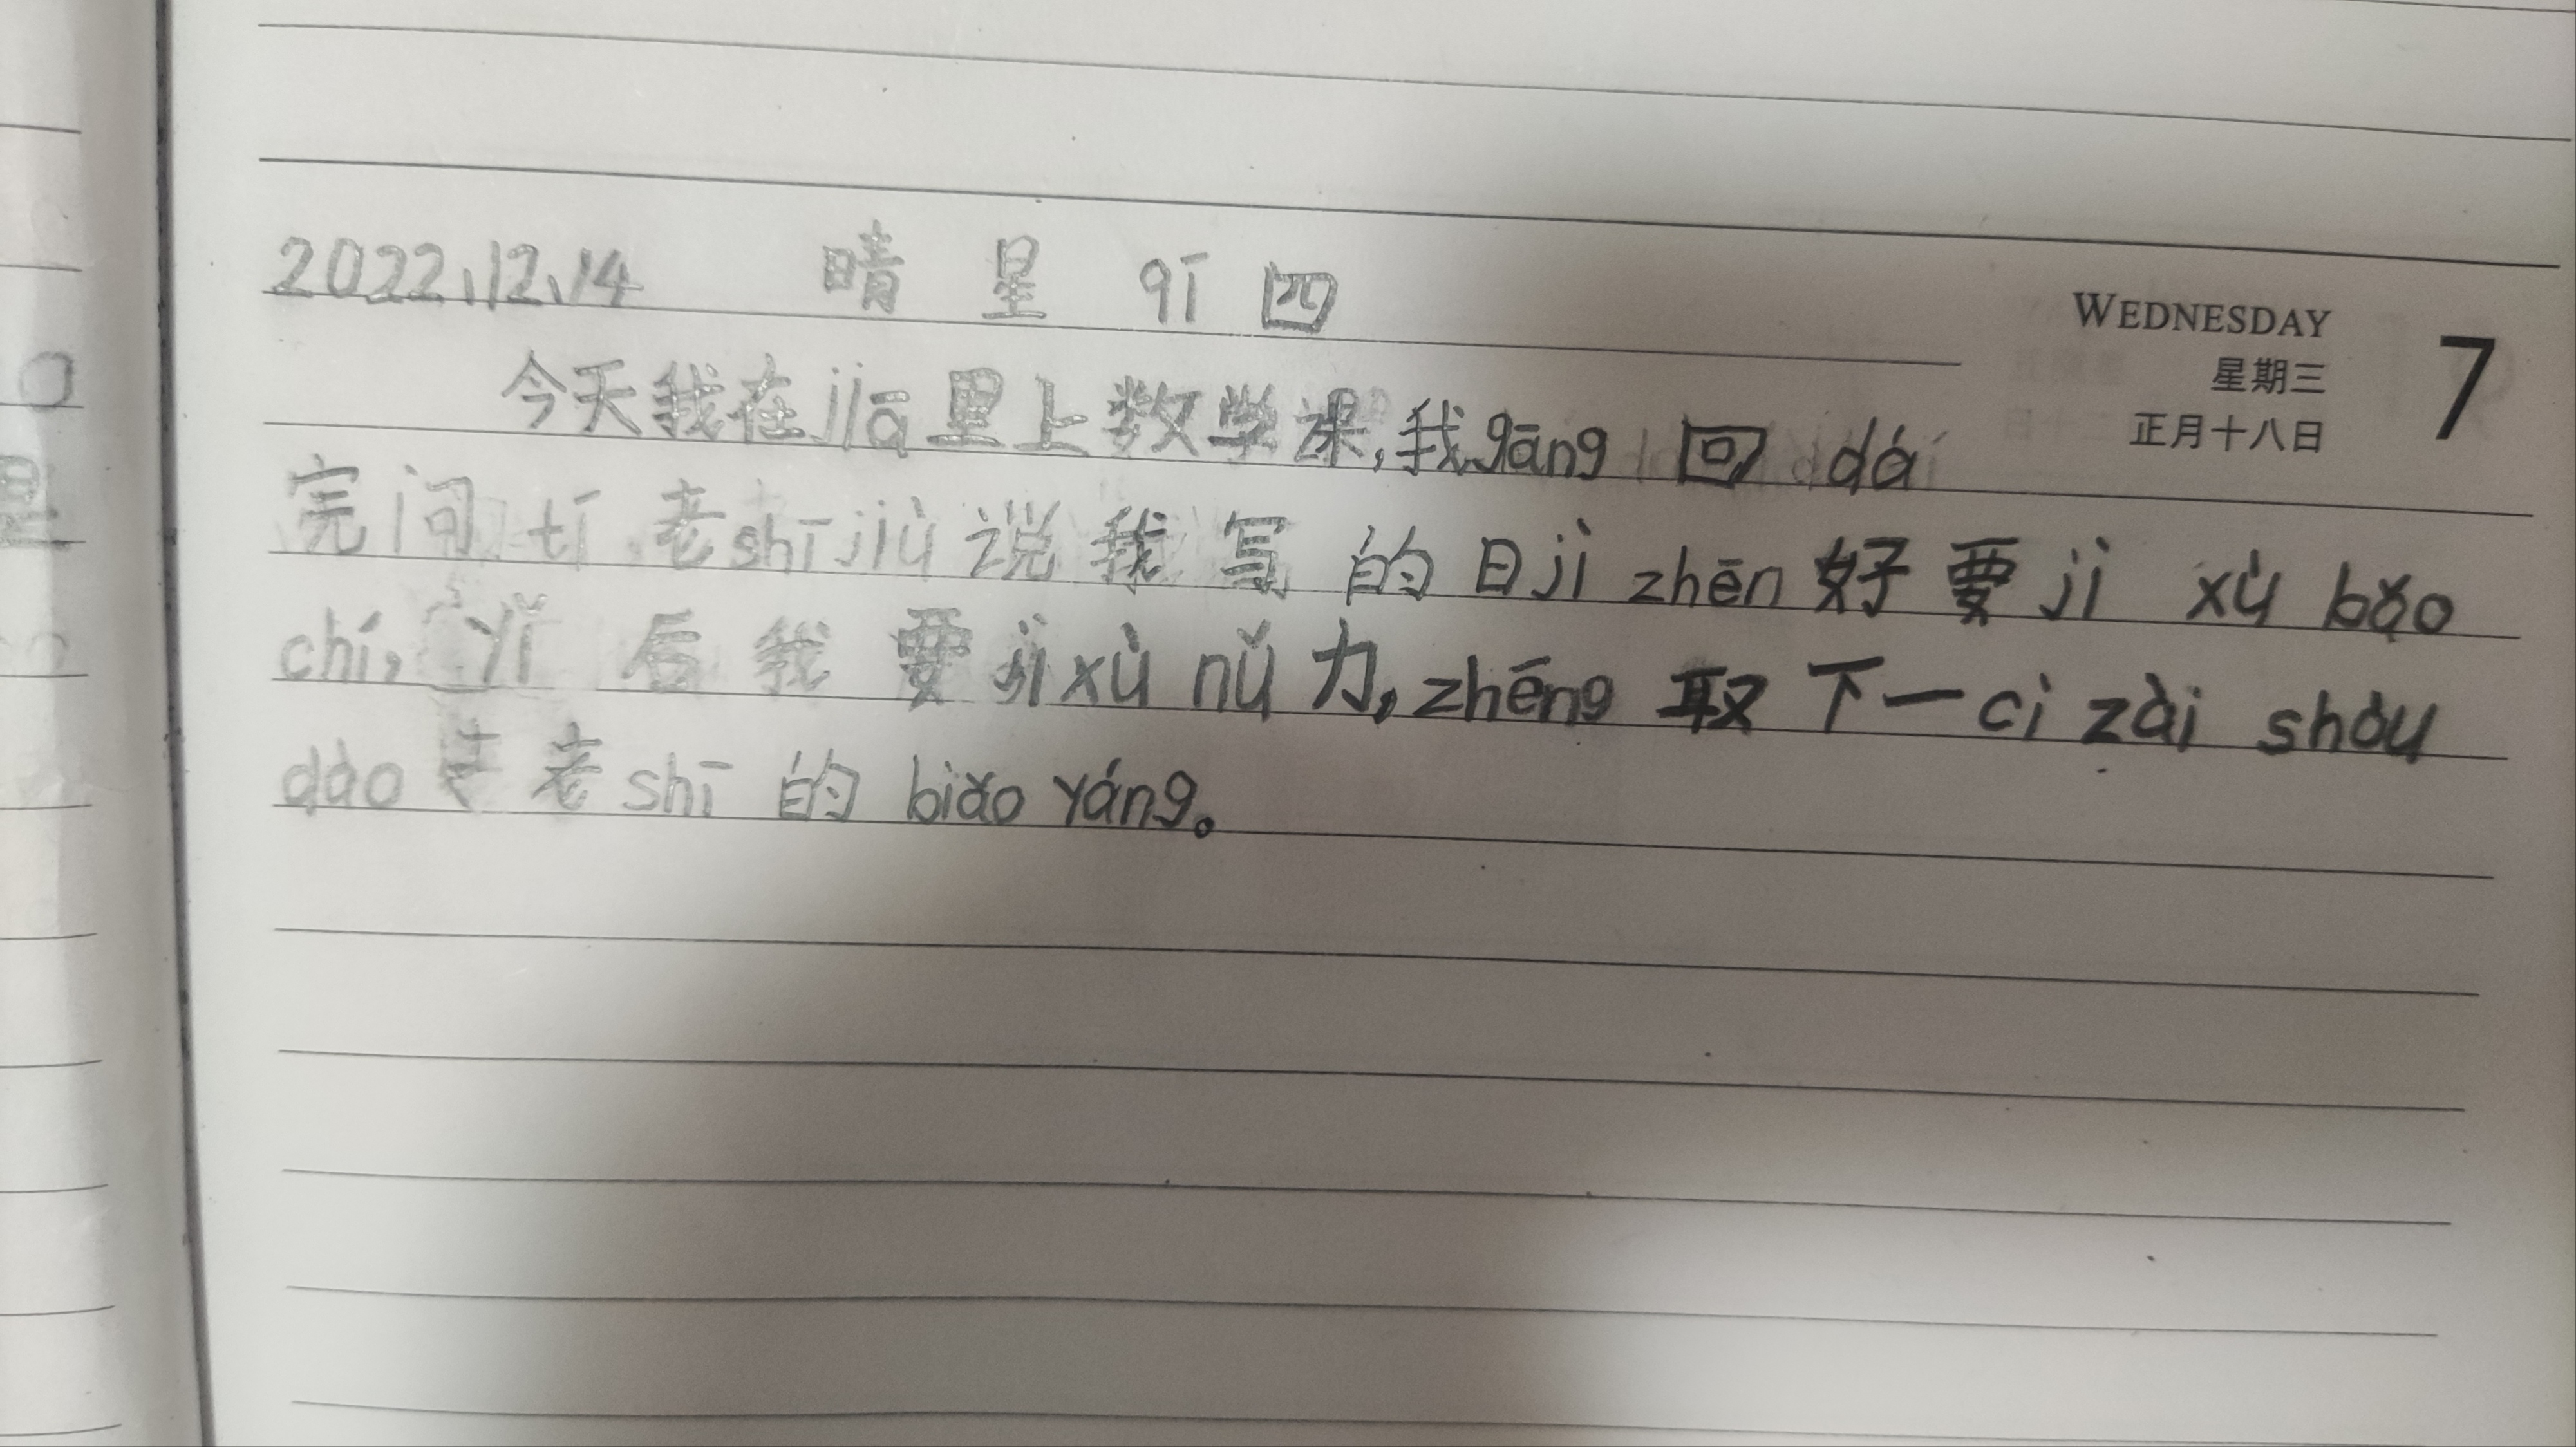 2022、12、14 晴 星 qī 四
WEDNESDAY
星期三
正月十八日
7
今天我在jiā里上数学课,我gāng 回 dá
完问 tí 老shī jiù 说 我 写 的 日jì zhēn 好 要 jì xù bǎo
chí, yǐ 后 我 要 jì xù nǔ 力,zhēng 取 下一cì zài shòu
dào 老 shī 的 biǎo yáng。